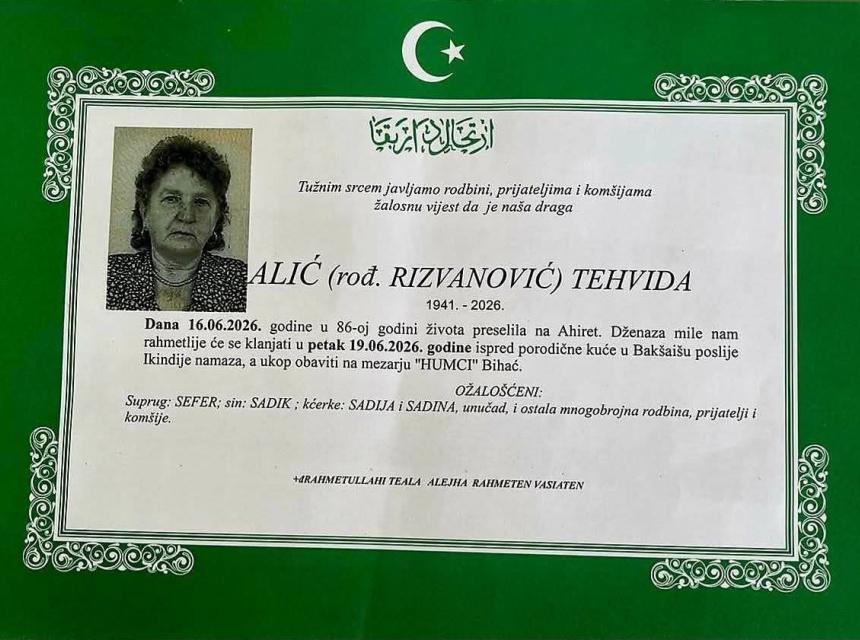 Tužnim srcem javljamo rodbini, prijateljima i komšijama
žalosnu vijest da je naša draga
ALIĆ (rođ. RIZVANOVIĆ) TEHVIDA
1941. - 2026.
Dana 16.06.2026. godine u 86-oj godini života preselila na Ahiret. Dženaza mile nam
rahmetlije će se klanjati u petak 19.06.2026. godine ispred porodične kuće u Bakšaišu poslije
Ikindije namaza, a ukop obaviti na mezarju "HUMCI" Bihać.
OŽALOŠĆENI:
Suprug: SEFER; sin: SADIK ; kćerke: SADIJA i SADINA, unučad, i ostala mnogobrojna rodbina, prijatelji i
komšije.
+đRAHMETULLAHI TEALA ALEJHA RAHMETEN VASIATEN